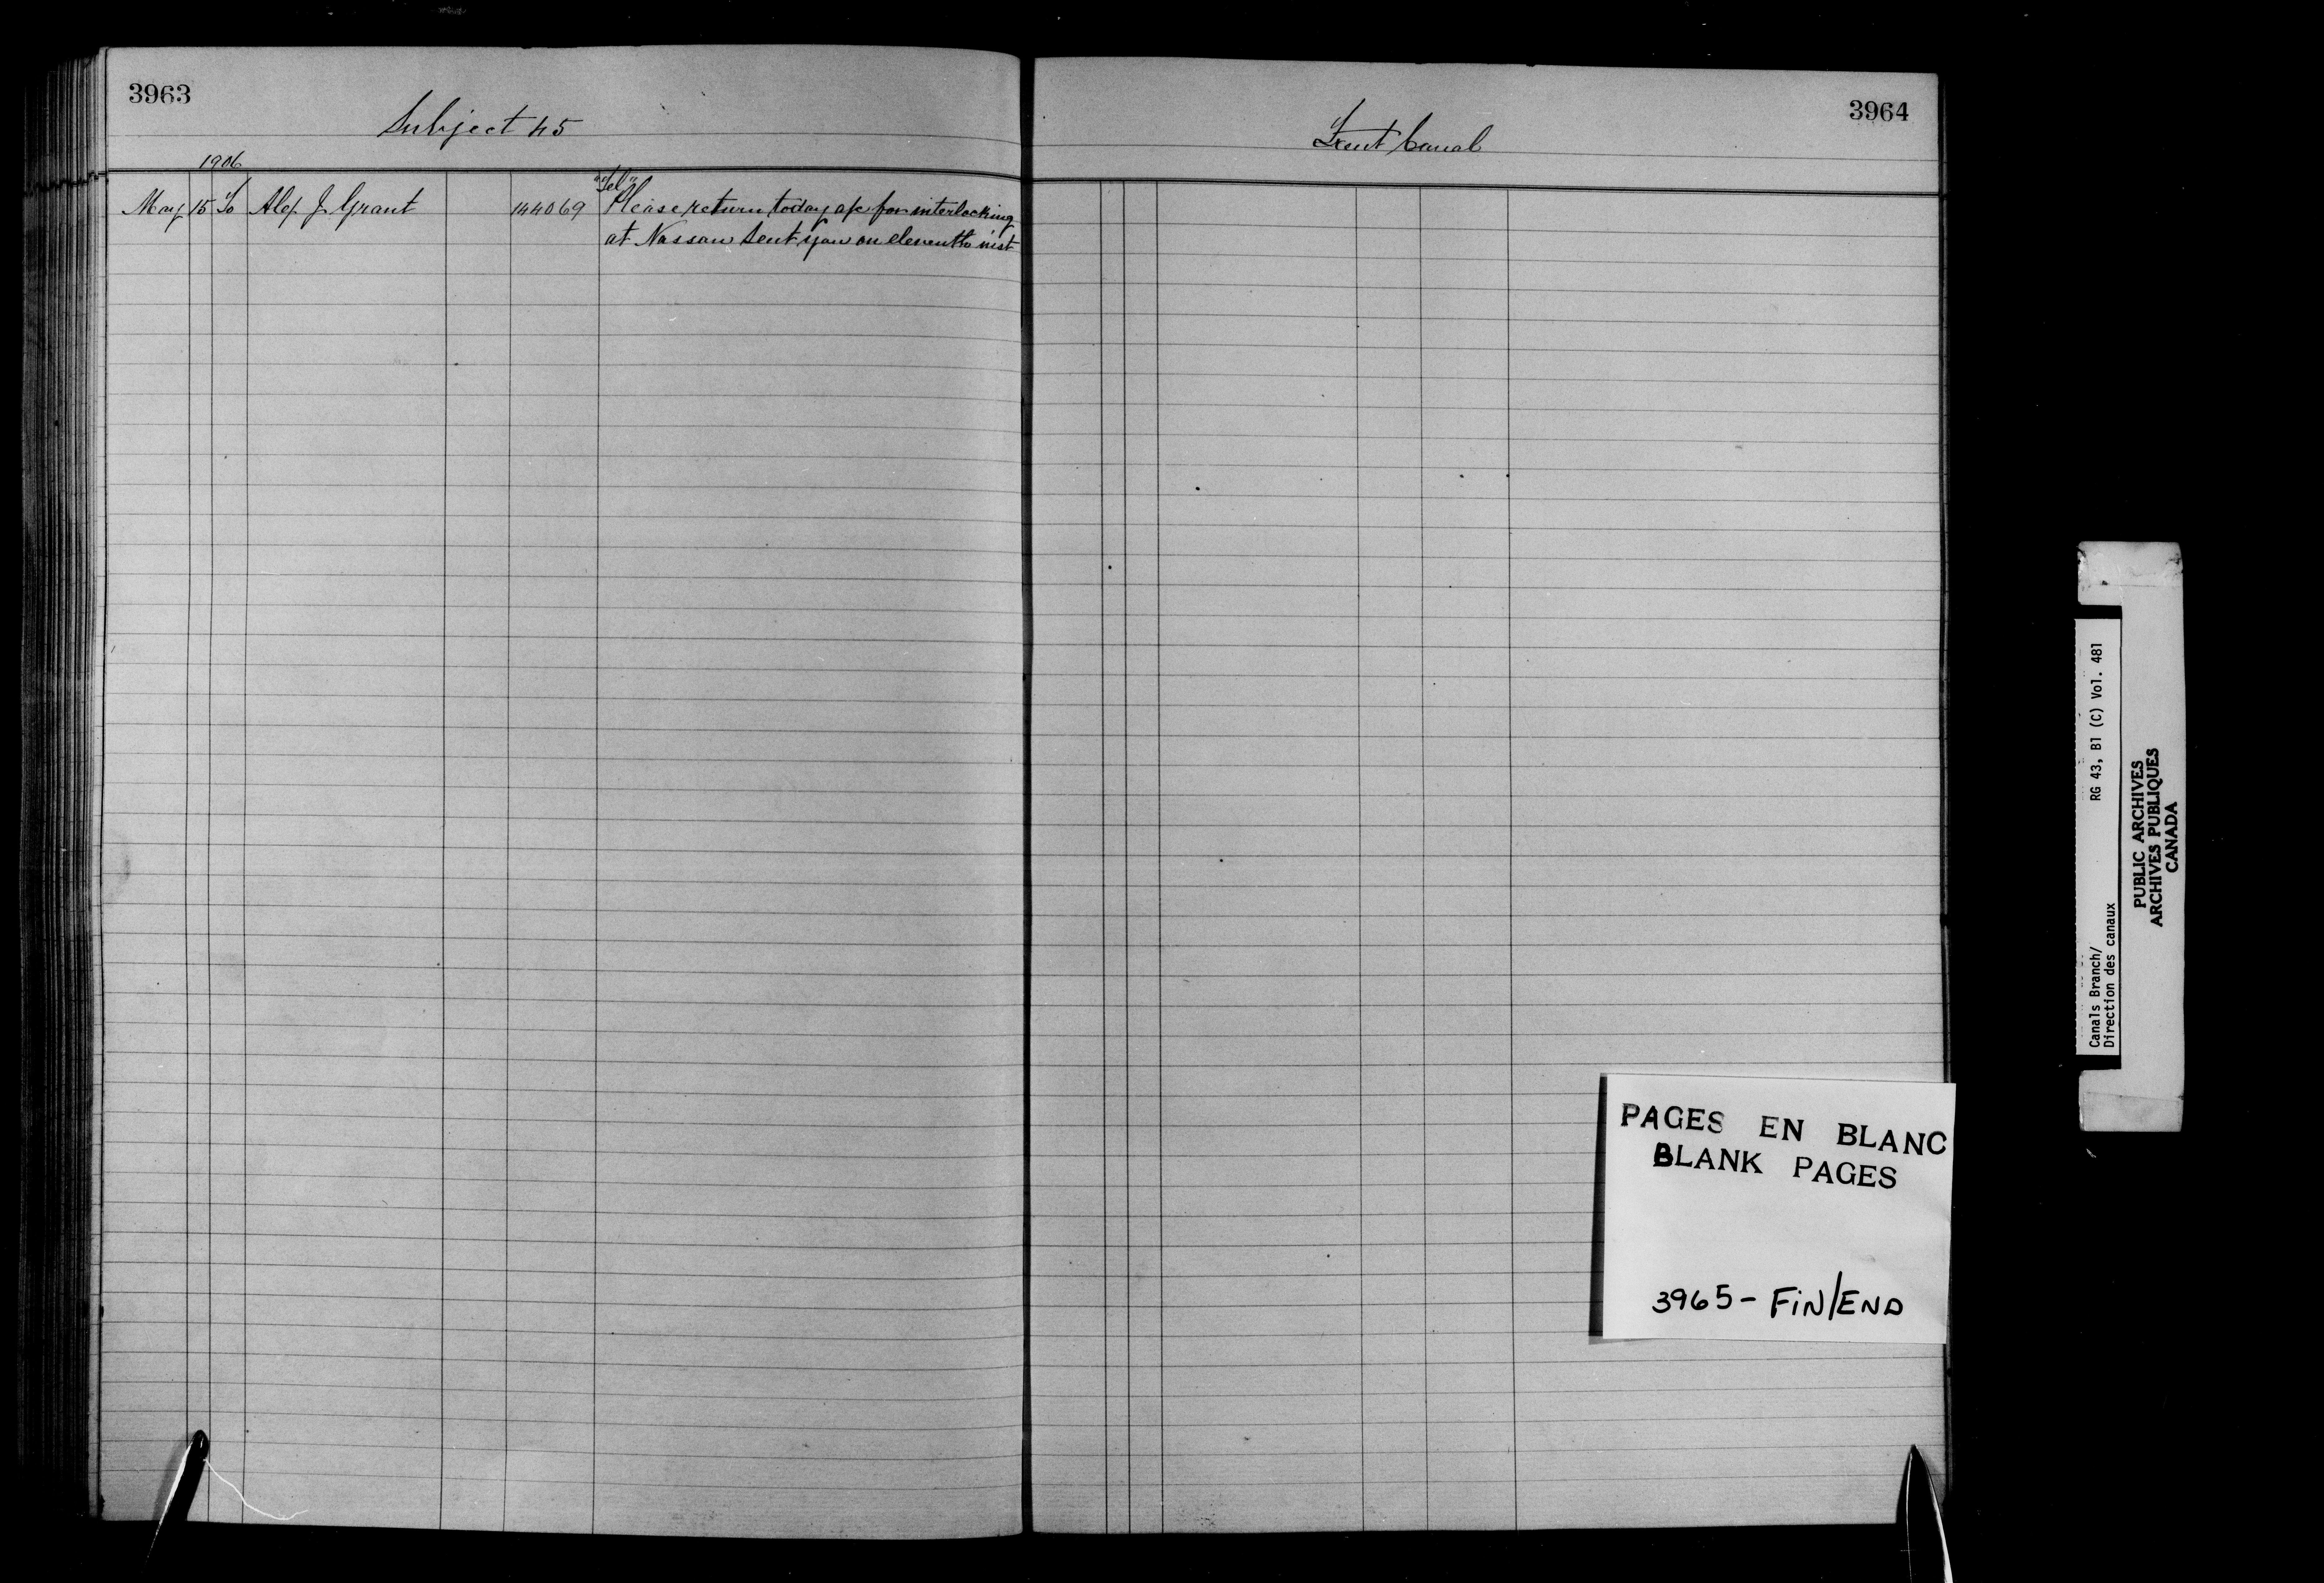 3963
Subject 45
1906
May 15 To Alex J. Grant 144069 "Tel"
Please return today a/c for interlocking
at Nassau sent you on eleventh inst
3964
Trent Canal
PAGES EN BLANC
BLANK PAGES
3965 - FIN/END
Canals Branch/ RG 43, B1 (C) Vol. 481
Direction des canaux
PUBLIC ARCHIVES
ARCHIVES PUBLIQUES
CANADA